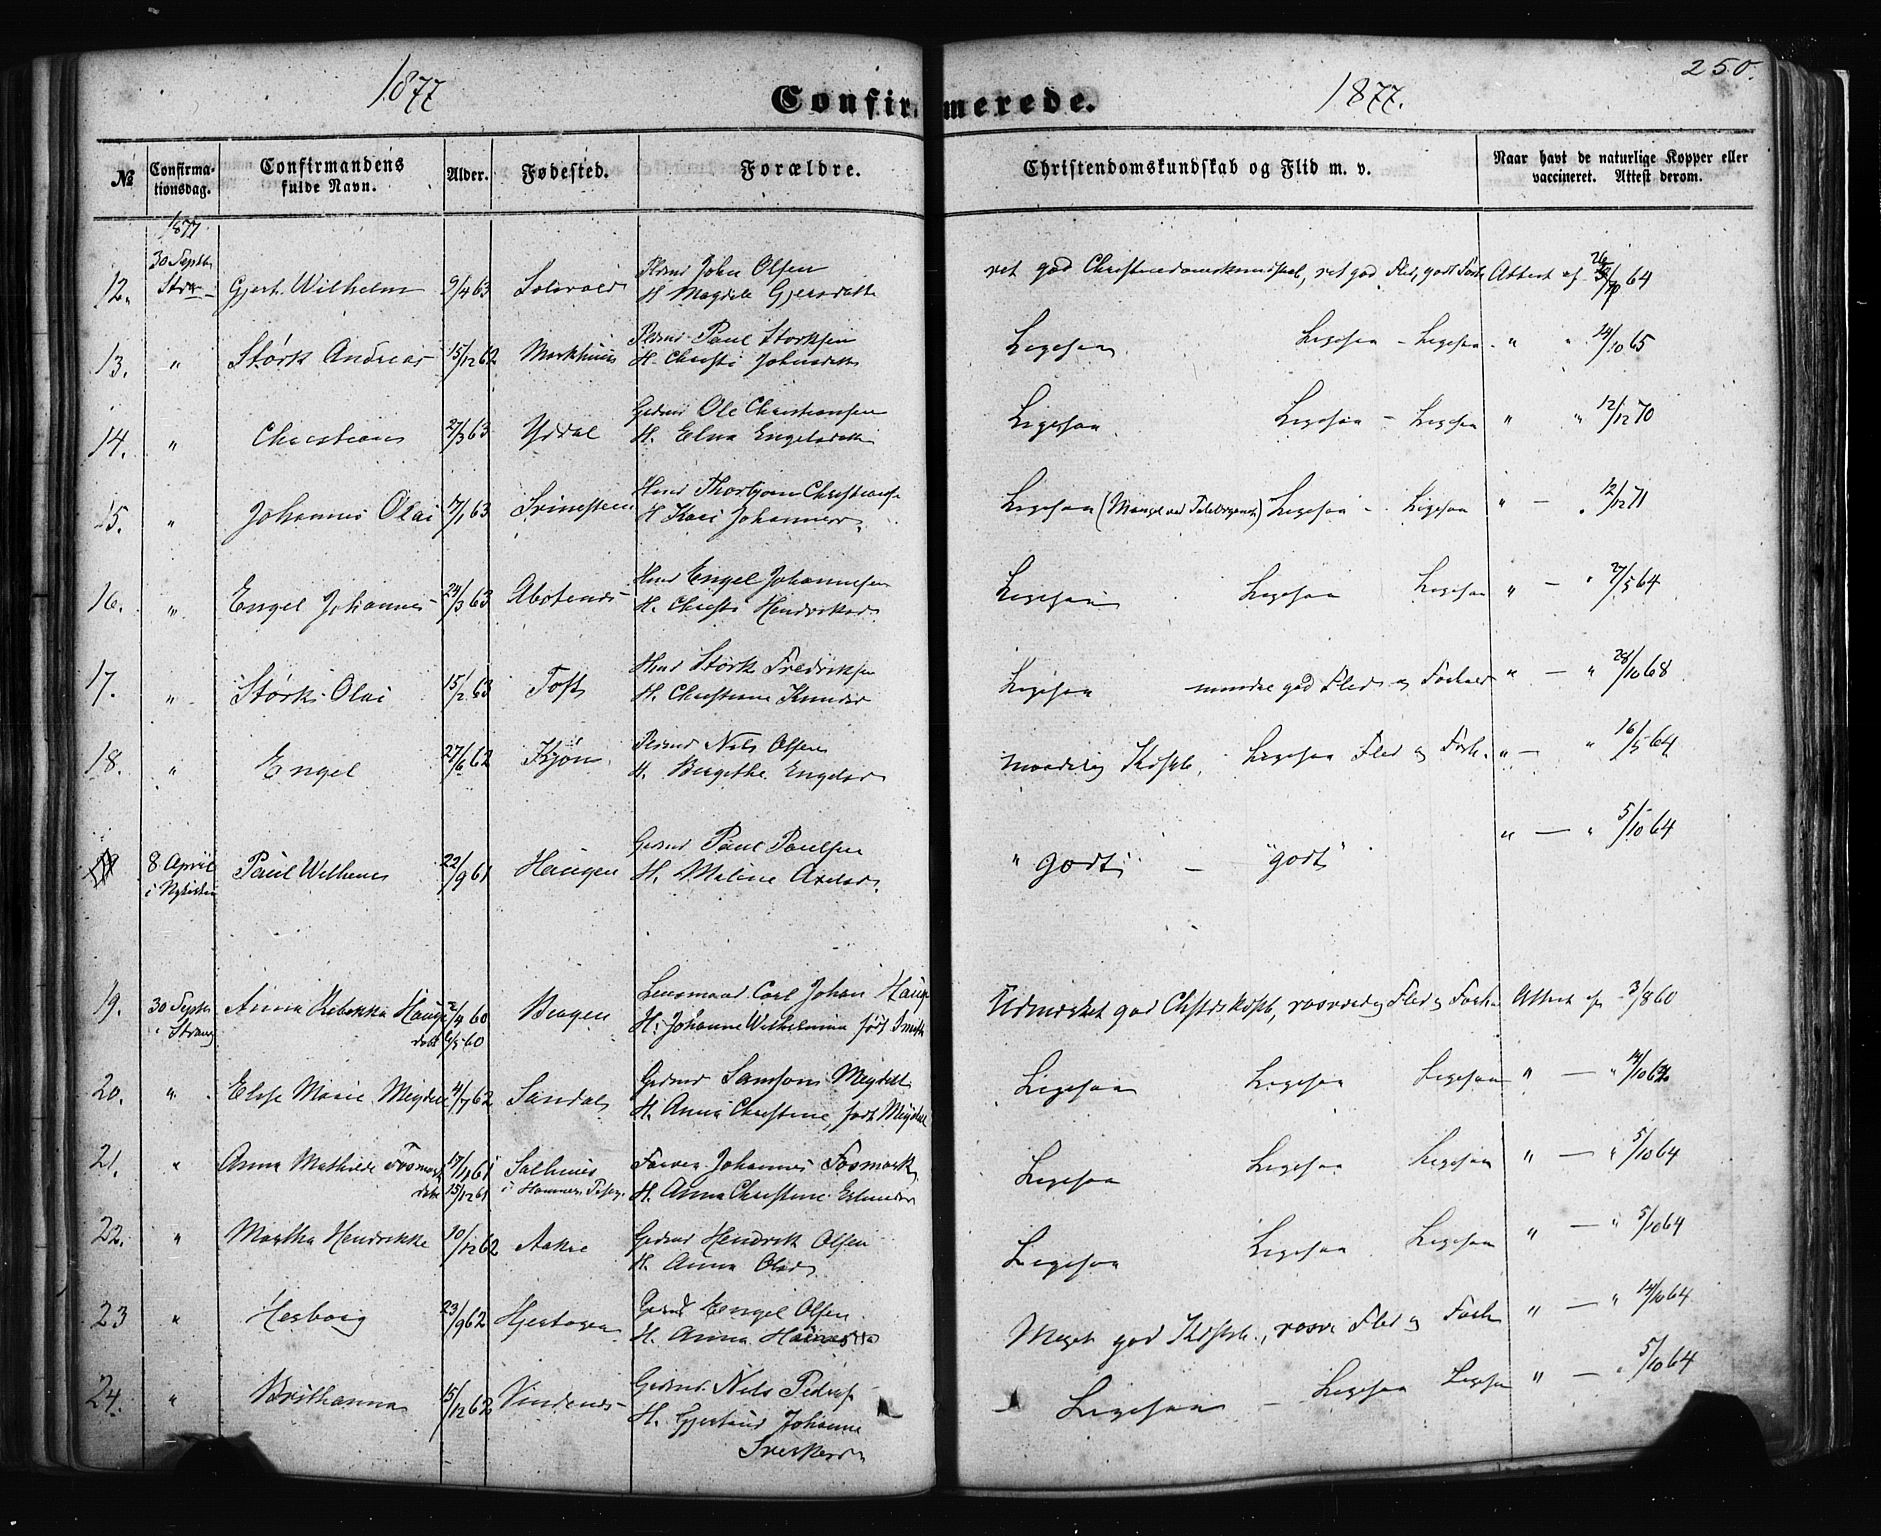 1877
Confirmerede.
1877.
250.
№
Confirmationsdag.
Confirmandens fulde Navn.
Alder.
Fødested.
Forældre.
Christendomskundskab og Flid m. v.
Naar havt de naturlige Kopper eller vaccineret. Attest derom.
1877
30 Septbr
12. Gjert Wilhelm 9/4 63 John Olsen
H. Magdele
ret god Christendomskundskab, ret god Flid, godt Forh Attest af 26/10 64
13. " Størk Andreas 15/12 62 Paul Storksen
H. Christi Johnsdatt
Ligesaa Ligesaa - Ligesaa " " 14/10 65
14. " Christian 27/3 63 Yddal Gdmd Ole Christiansen
H. Elna Engelsdatt
Ligesaa Ligesaa - Ligesaa " " 12/12 70
15. " Johannes Olai 17/1 63 Svinesteen Hmd Thorbjørn
H. Kari Johannesd.
Ligesaa (Mangel ved Taleorganet) Ligesaa - Ligesaa " - " 12/12 71
16. " Engel Johannes 24/3 63 Hmd Engel Johannesen
H. Christi Hendriksd.
Ligesaa Ligesaa Ligesaa " - " 27/5 64
17. " Størk Olai 15/2 63 Toft Hmd Størk Fredriksen
H. Christiane Knudsd
Ligesaa mindre god Flid og Forhold " - " 28/10 68
18. " Engel 27/6 62 Nils Olsen
H. Birgithe Engelsd
maadelig Kdskb. Ligesaa Flid og Forh. " - " 16/5 64
8 April
i Nykirken
Paul Wilhelm 22/9 61 Haugen Gdmd Paul Paulsen
H. Maline Axelsd.
"godt" - "godt" " - " 5/10 64
19. 30 Septbr Anna Rebekka Haug /4 60
døbt 6/5 60
Lensmand Carl Johan Haug
H. Johanne Wilhelmine født Smith
Udmærket god Flid og Forh Attest af 3/8 60
20. " Else Marie Meydell 4/7 62 Sandal Gdmd Samson Meydell
H. Anna Christine, født Meydell
Ligesaa Ligesaa Ligesaa " - "
21. " Anna Mathilde Fosmark 17/11 61
døbt 15/12 61
Salhus
i Hammers
Farver Johannes Fosmark
H. Anna Christine
Ligesaa Ligesaa Ligesaa " - " 5/10 64
22. " Martha Hendrikke 10/12 62 Aakre Gdmd Hendrik Olsen
H. Anna Olsd.
Ligesaa Ligesaa Ligesaa " - " 5/10 64
23 " Herborg 23/9 62 Gdmd Engel Olsen
H. Anna
Meget god Flid og Forh " - " 14/10 64
24. " Brithanna 15/12 62 Vindenes Gdmd. Nils Peders
H. Gjertrud Johanne
- Ligesaa - Ligesaa Ligesaa " - " 5/10 64